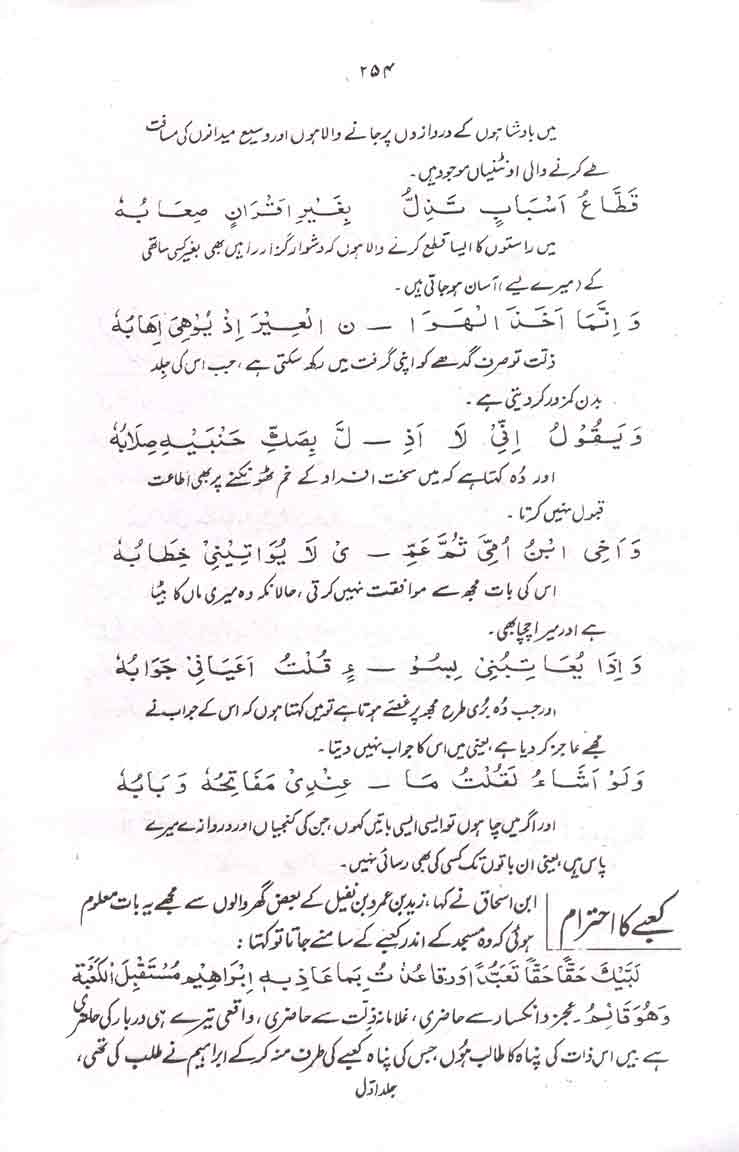 ۲۵۴
میں بادشاہوں کے دروازوں پر جانے والا ہوں اور وسیع میدانوں کی مسافت
طے کرنے والی اونٹنیاں موجود ہیں۔
قَطَّاعُ اَسْبَابٍ تَذِلُّ بِغَيْرِ اَقْرَانٍ صِعَابُهٗ
میں راستوں کا ایسا قطع کرنے والا ہوں کہ دشوار گزار راہیں بھی بغیر کسی ساتھی
کے (میرے لیے) آسان ہو جاتی ہیں۔
وَ اِنَّمَا اَخَذَ الْهَوَا — نَ الْعِيْرَ اِذْ يُوْهِىَ اِهَابُهٗ
ذلت تو صرف گدھے کو اپنی گرفت میں رکھ سکتی ہے، جب اس کی جلد
بدن کمزور کر دیتی ہے۔
وَ يَقُوْلُ اِنِّىْ لَا اَذِ — لُّ بِصَكِّ جَنْبَيْهِ صِلَابُهٗ
اور وُہ کہتا ہے کہ میں سخت افراد کے خم ٹھونکنے پر بھی اطاعت
قبول نہیں کرتا۔
وَ اَخِى ابْنُ اُمِّىْ ثُمَّ عَمِّ — ىْ لَا يُوَاتِيْنِىْ خِطَابُهٗ
اس کی بات مجھ سے موافقت نہیں کرتی، حالانکہ وہ میری ماں کا بیٹا
ہے اور میرا چچا بھی۔
وَ اِذَا يُعَاتِبُنِىْ بِسُوْ — ءٍ قُلْتُ اَعْيَانِىْ جَوَابُهٗ
اور جب وُہ بُری طرح مجھ پر غصے ہوتا ہے تو میں کہتا ہوں کہ اس کے جواب نے
مجھے عاجز کر دیا ہے، یعنی میں اس کا جواب نہیں دیتا۔
وَ لَوْ اَشَاءُ لَقُلْتُ مَا — عِنْدِىْ مَفَاتِحُهٗ وَ بَابُهٗ
اور اگر میں چاہوں تو ایسی ایسی باتیں کہوں، جن کی کنجیاں اور دروازے میرے
پاس ہیں، یعنی ان باتوں تک کسی کی بھی رسائی نہیں۔
کعبے کا احترام
ابن اسحاق نے کہا، زید بن عمرو بن نفیل کے بعض گھر والوں سے مجھے یہ بات معلوم
ہوئی کہ وہ مسجد کے اندر کعبے کے سامنے جاتا تو کہتا:
لَبَّيْكَ حَقًّا حَقًّا تَعَبُّدًا وَرِقًا عُذْتُ بِمَا عَاذَ بِهٖ اِبْرَاهِيْمُ مُسْتَقْبِلَ الْكَعْبَةِ
وَهُوَ قَائِمٌ۔ عجز و انکسار سے حاضری، غلامانہ ذلت سے حاضری، واقعی تیرے ہی دربار کی حاضری
ہے ہیں اس ذات کی پناہ کا طالب ہُوں، جس کی پناہ کعبے کی طرف منہ کر کے ابراہیم نے طلب کی تھی،
جلد اوّل